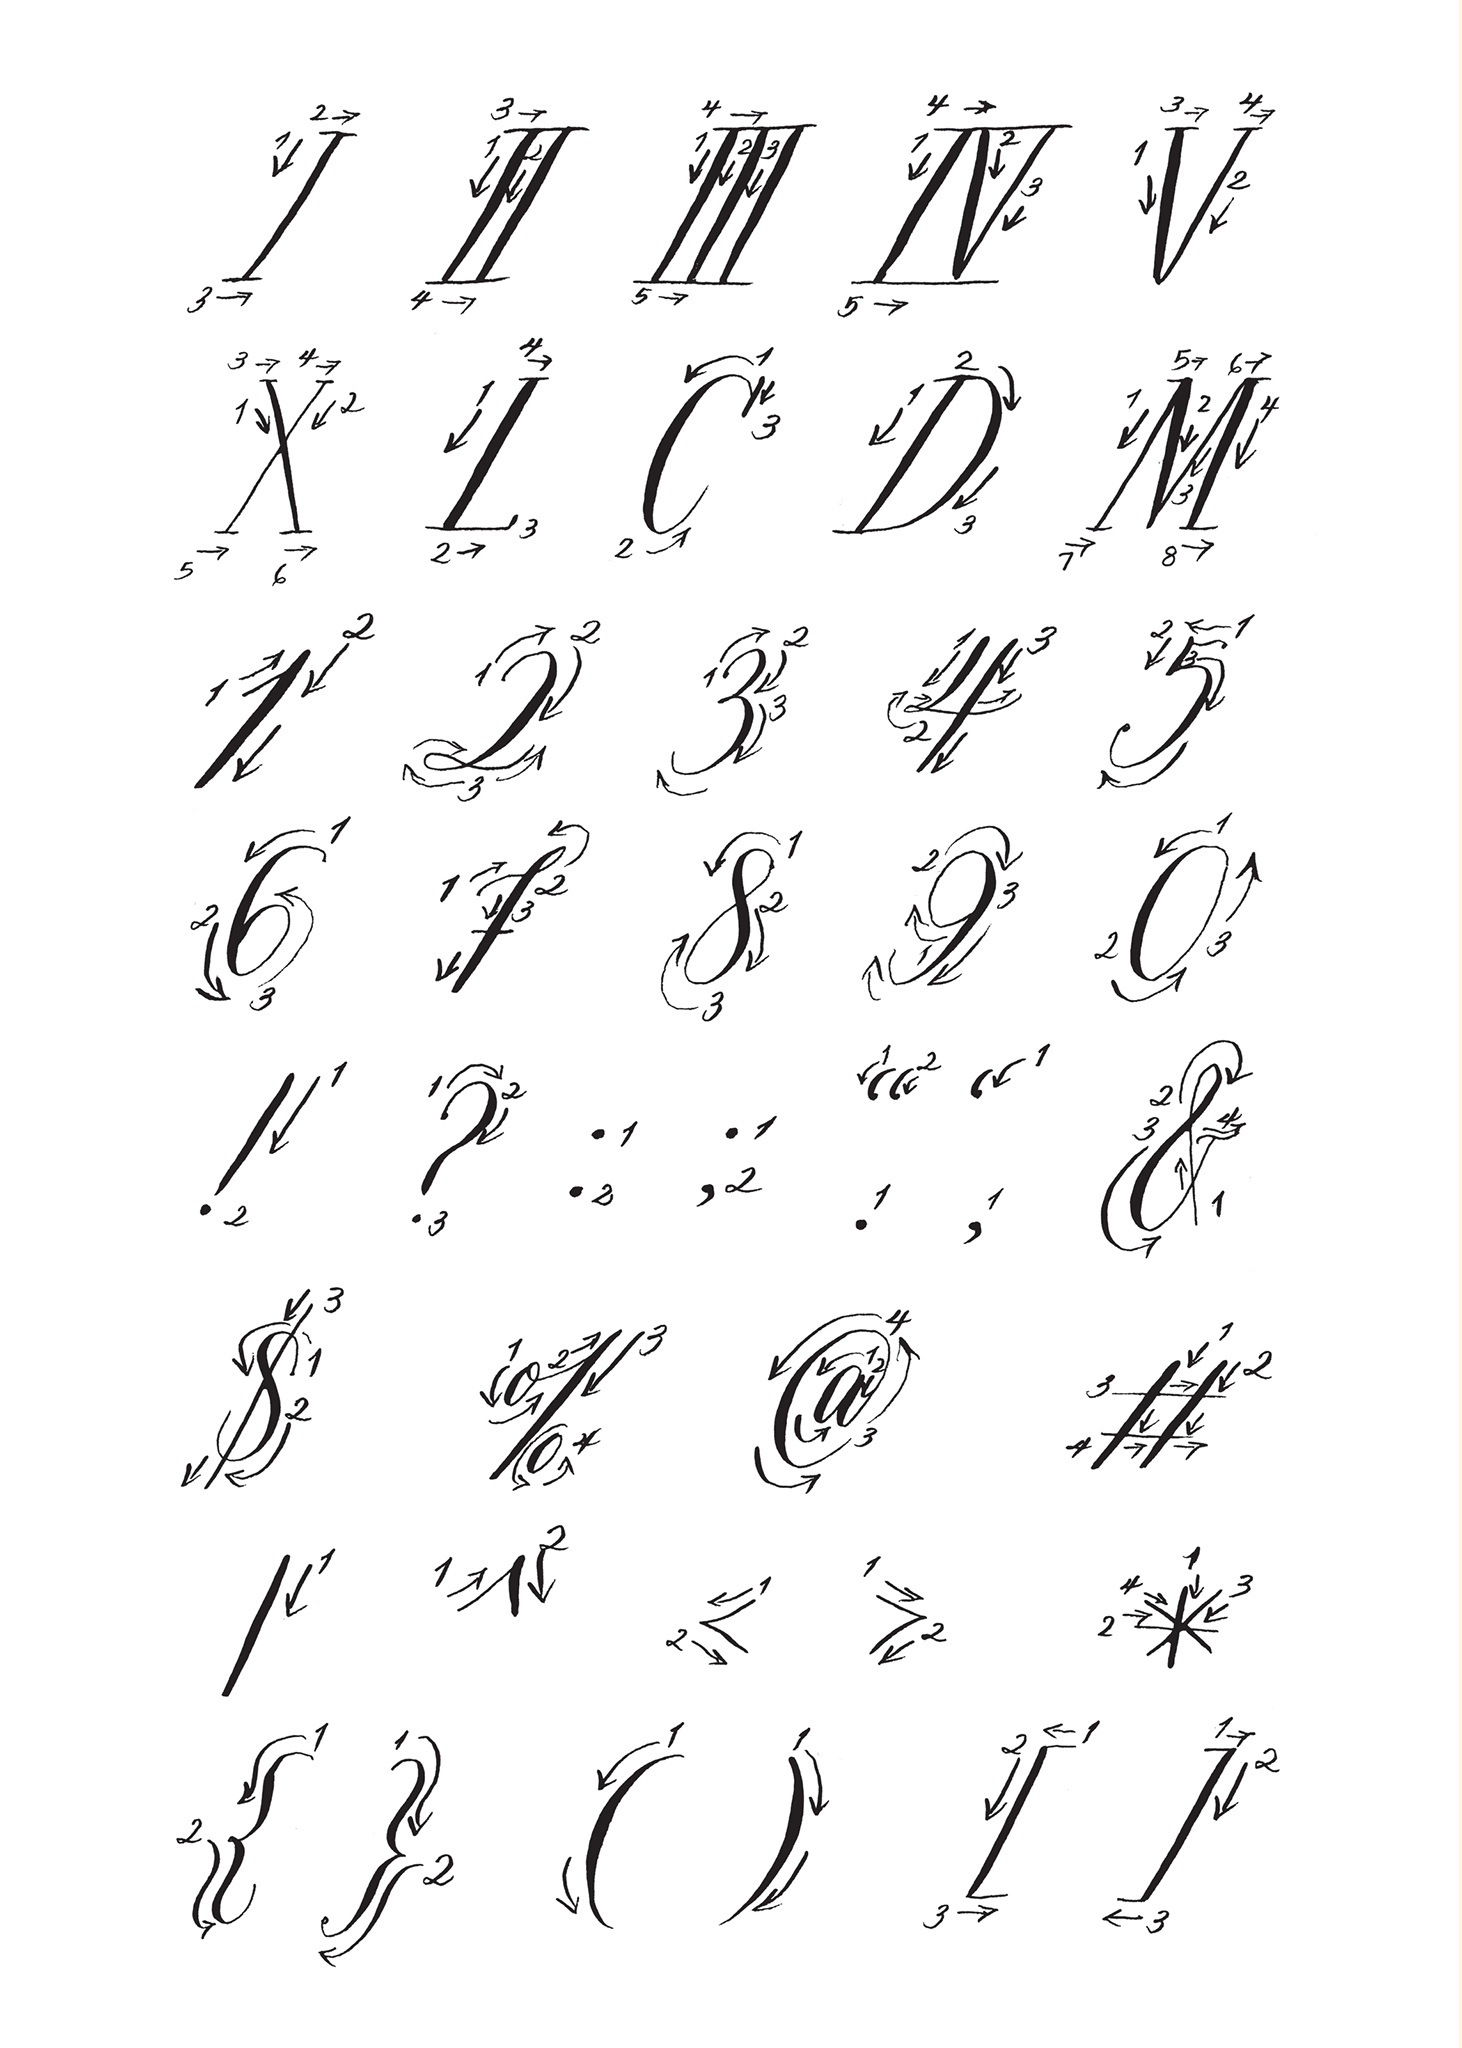 I II III IV V
X L C D M
1 2 3 4 5
6 7 8 9 0
! ? : ; . , “ ‘ &
$ % @ #
/ ^ < > *
{ } ( ) [ ]